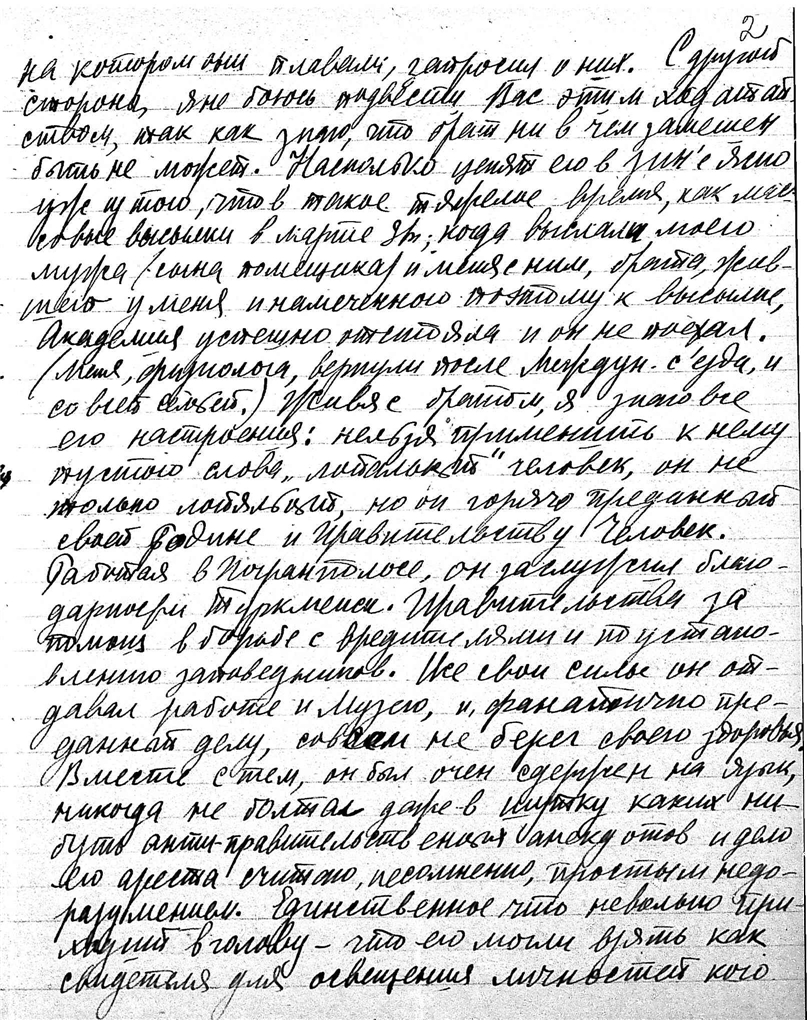 2
на котором они плавали, запросил о них. С другой
стороны, я не боюсь подвести Вас этим ходатай
ством, так как знаю, что брат ни в чем замешен
быть не может. Насколько ценят его в ЗИН'е ясно
уж из того, что в такое тяжелое время, как мас-
совые высылки в марте 35г., когда выслали моего
мужа (сына помещика) и меня с ним, брата, жив-
шего у меня и намеченного поэтому к высылке,
Академия успешно отстояла и он не поехал.
(Меня, физиолога, вернули после Междун. с'езда, и
со всей семьей.) Живя с братом, я знаю все
его настроения: нельзя применить к нему
пустого слова „лояльный" человек, он не
только лояльный, но он горячо преданный
своей Родине и Правительству Человек.
Работая в Погранполосе, он заслужил благо-
дарность Туркменск. Правительства за
помощь в борьбе с вредителями и по устано-
влению заповедников. Все свои силы он от-
давал работе и Музею, и, фанатично пре-
данный делу, совсем не берег своего здоровья.
Вместе с тем, он был очен сдержен на язык,
никогда не болтал даже в шутку каких ни-
будь анти-правительственных анекдотов и дело
его ареста считаю, несомненно, простым недо-
разумением. Единственное что невольно при-
ходит в голову – что его могли взять как
свидетеля для освещения личностей кого